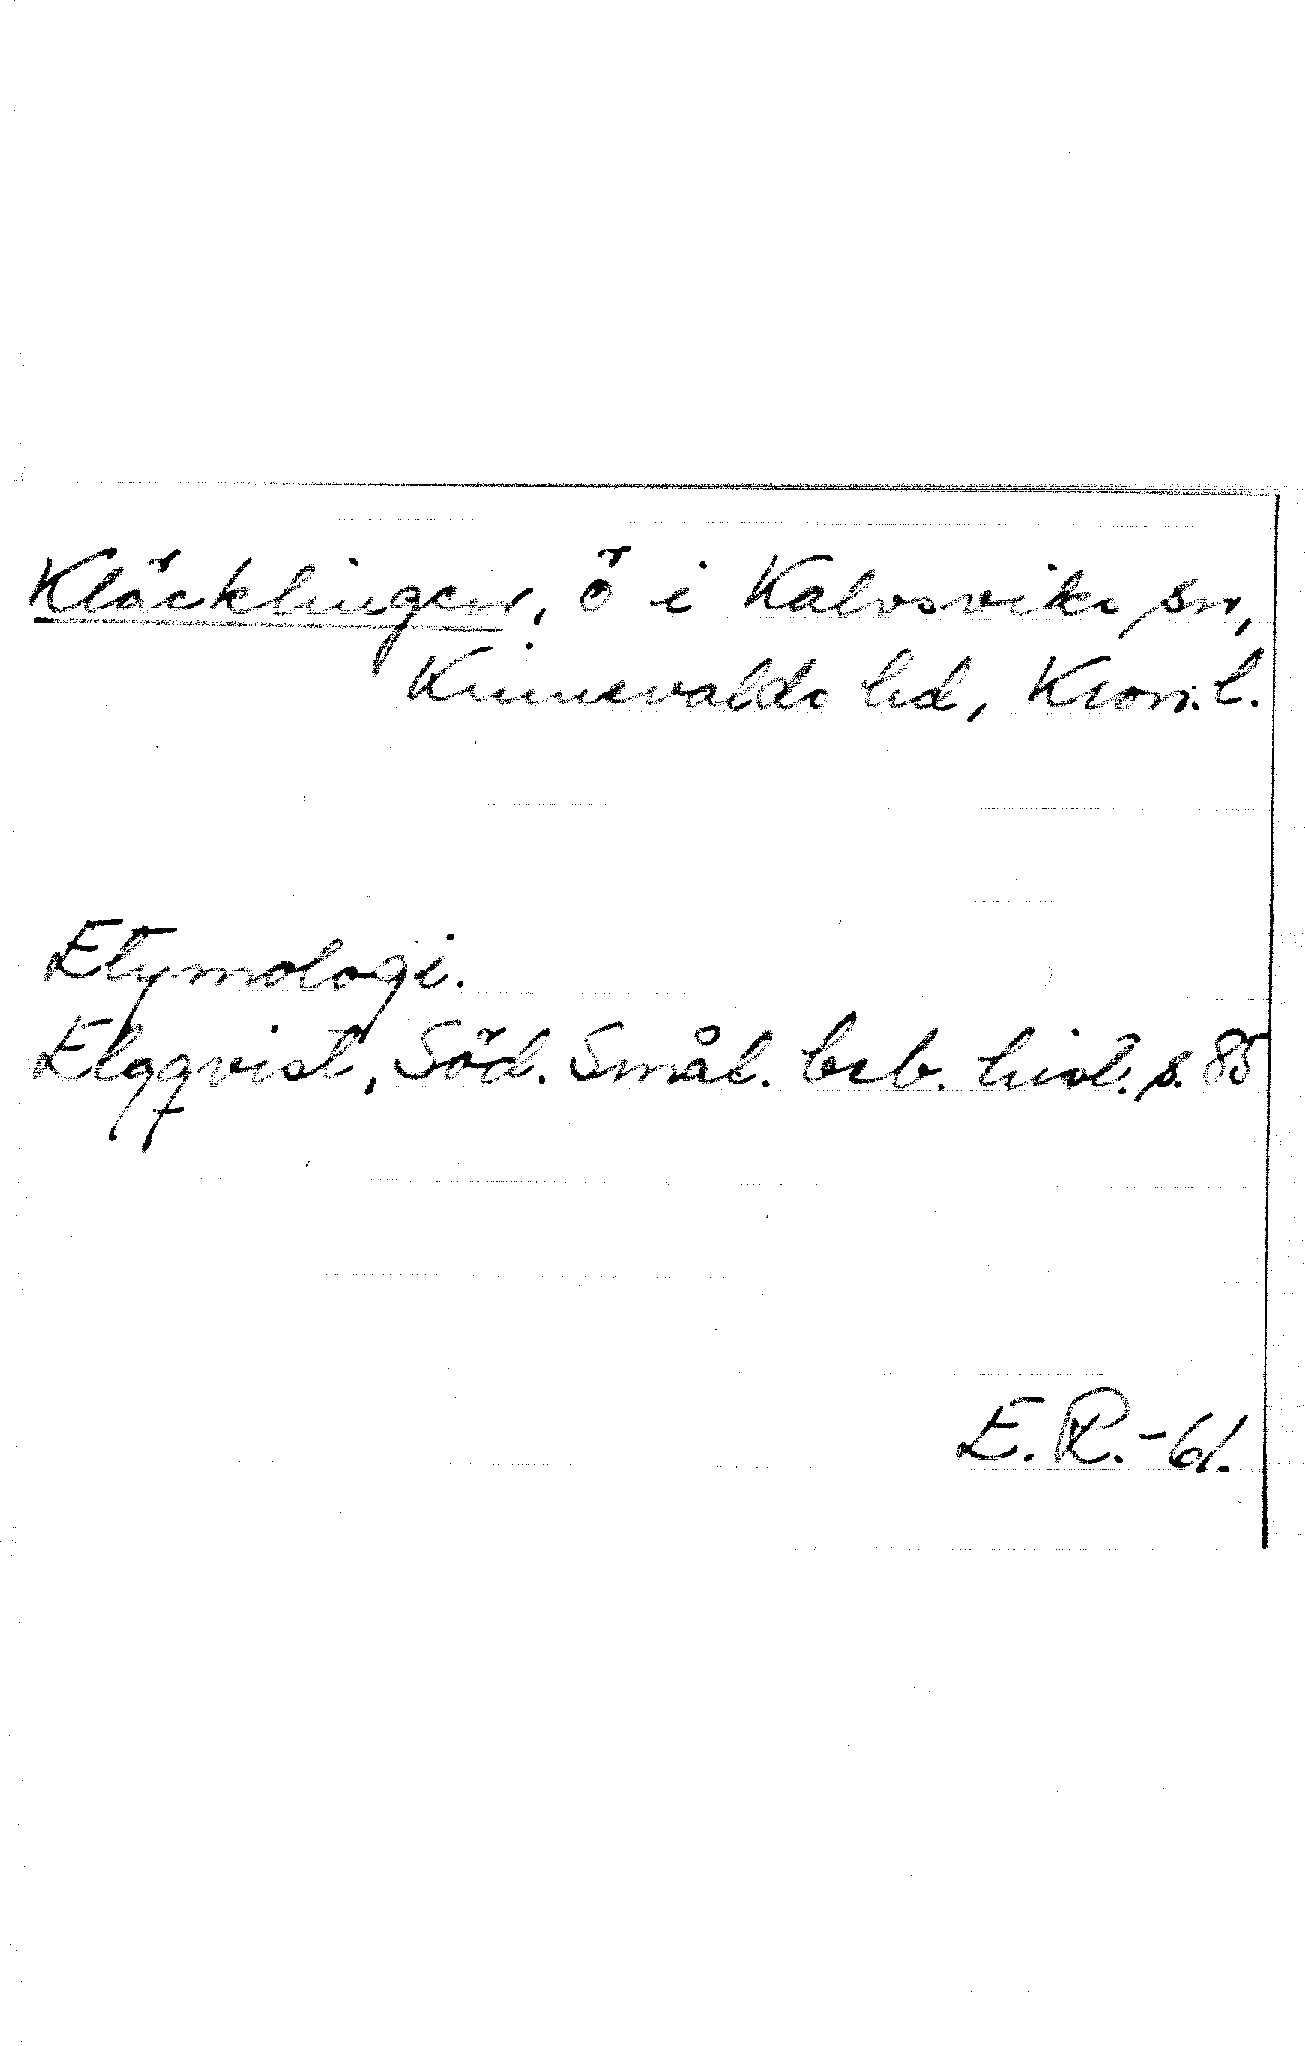 Kläcklingen, ö i Kalvsviks sn,
Kinnevalds hd, Kron. l.
Etymologi.
Elgqvist, Söd. Smål. beb. hist. s. 85
E. R. -61.